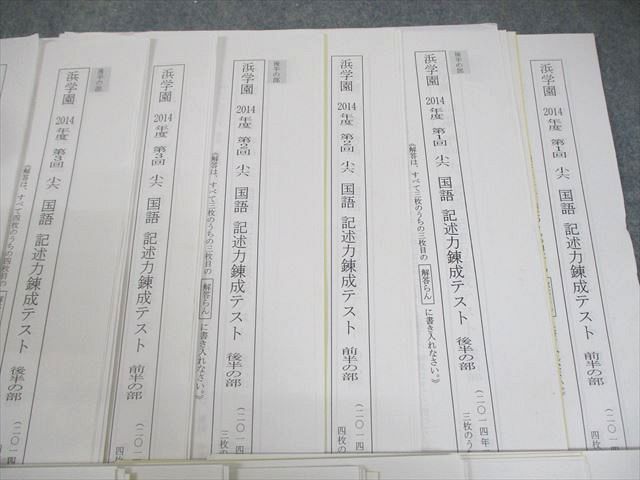 浜学園 2014年度 第1回 小六 国語 記述力錬成テスト 前半の部
(二〇一四
四枚の
後半の部
浜学園 2014年度 第1回 小六 国語 記述力錬成テスト 後半の部
(二〇一四年
三枚のう
《解答は、すべて三枚のうちの三枚目の 解答らん に書き入れなさい。》
浜学園 2014年度 第2回 小六 国語 記述力錬成テスト 前半の部
(二〇一四
四枚の
後半の部
浜学園 2014年度 第2回 小六 国語 記述力錬成テスト 後半の部
(二〇一四
三枚の
《解答は、すべて三枚のうちの三枚目の 解答らん に書き入れなさい。》
浜学園 2014年度 第3回 小六 国語 記述力錬成テスト 前半の部
(二〇一四
四枚
後半の部
浜学園 2014年度 第3回 小六 国語 記述力錬成テスト 後半の部
(二〇一
四枚
《解答は、すべて四枚のうちの四枚目の